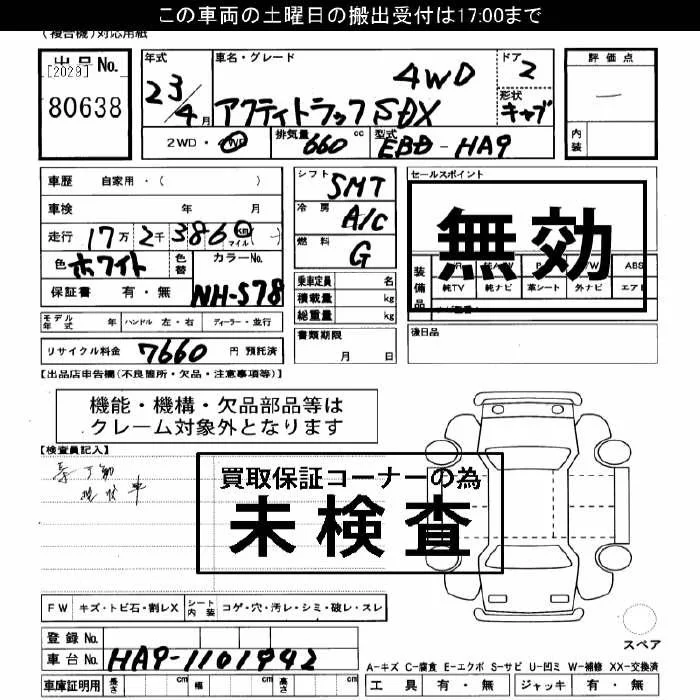 この車両の土曜日の搬出受付は17:00まで
(複合機)対応用紙
出品No.
[2029]
80638
年式
23/4月
車名・グレード
4WD
アクティトラックSDX
ドア
2
形状
キャブ
2WD・4WD
排気量
660 cc
型式
EBD-HA9
評価点
―
内装
車歴 自家用・( )
車検 年 月
走行 17万2千386 km マイル ( )
色 ホワイト
色替
カラーNo.
NH-578
保証書 有・無
シフト
5MT
冷房
A/C
燃料
G
乗車定員 名
積載量 kg
総重量 kg
セールスポイント
無効
装備品
ABS
純TV 純ナビ 革シート 外ナビ エアB
モデル年式 年 ハンドル 左・右 ディーラー・並行
リサイクル料金 7660 円 預託済
書類期限
月 日
後日品
【出品店申告欄(不良箇所・欠品・注意事項等)】
機能・機構・欠品部品等は
クレーム対象外となります
【検査員記入】
買取保証コーナーの為
未検査
FW キズ・トビ石・割レX シート内装 コゲ・穴・汚レ・シミ・破レ・スレ
登録No.
車台No. HA9-1101942
車庫証明用 長さ cm 幅 cm 高さ cm
スペア
A-キズ C-腐食 E-エクボ S-サビ U-凹ミ W-補修 XX-交換済
工具 有・無 ジャッキ 有・無